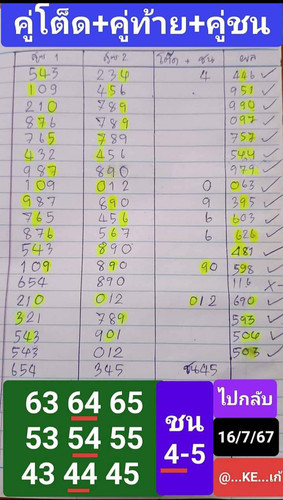 คู่โต็ด+คู่ท้าย+คู่ชน
ชุด 1 ชุด 2 โต๊ด + ชน ผล
545 234 4 446 ✓
109 456 951 ✓
210 789 994 ✓
876 789 097 ✓
765 789 757 ✓
432 456 544 ✓
987 890 979 ✓
109 012 0 063 ✓
987 890 9 395 ✓
765 456 6 603 ✓
876 567 6 626 ✓
543 890 481 ✓
109 890 90 598 ✓
654 890 116 X
210 012 012 690 ✓
321 789 593 ✓
543 901 504 ✓
543 012 503 ✓
654 345 445
63 64 65
53 54 55
43 44 45
ชน
4-5
ไปกลับ
16/7/67
@...KE...เก้